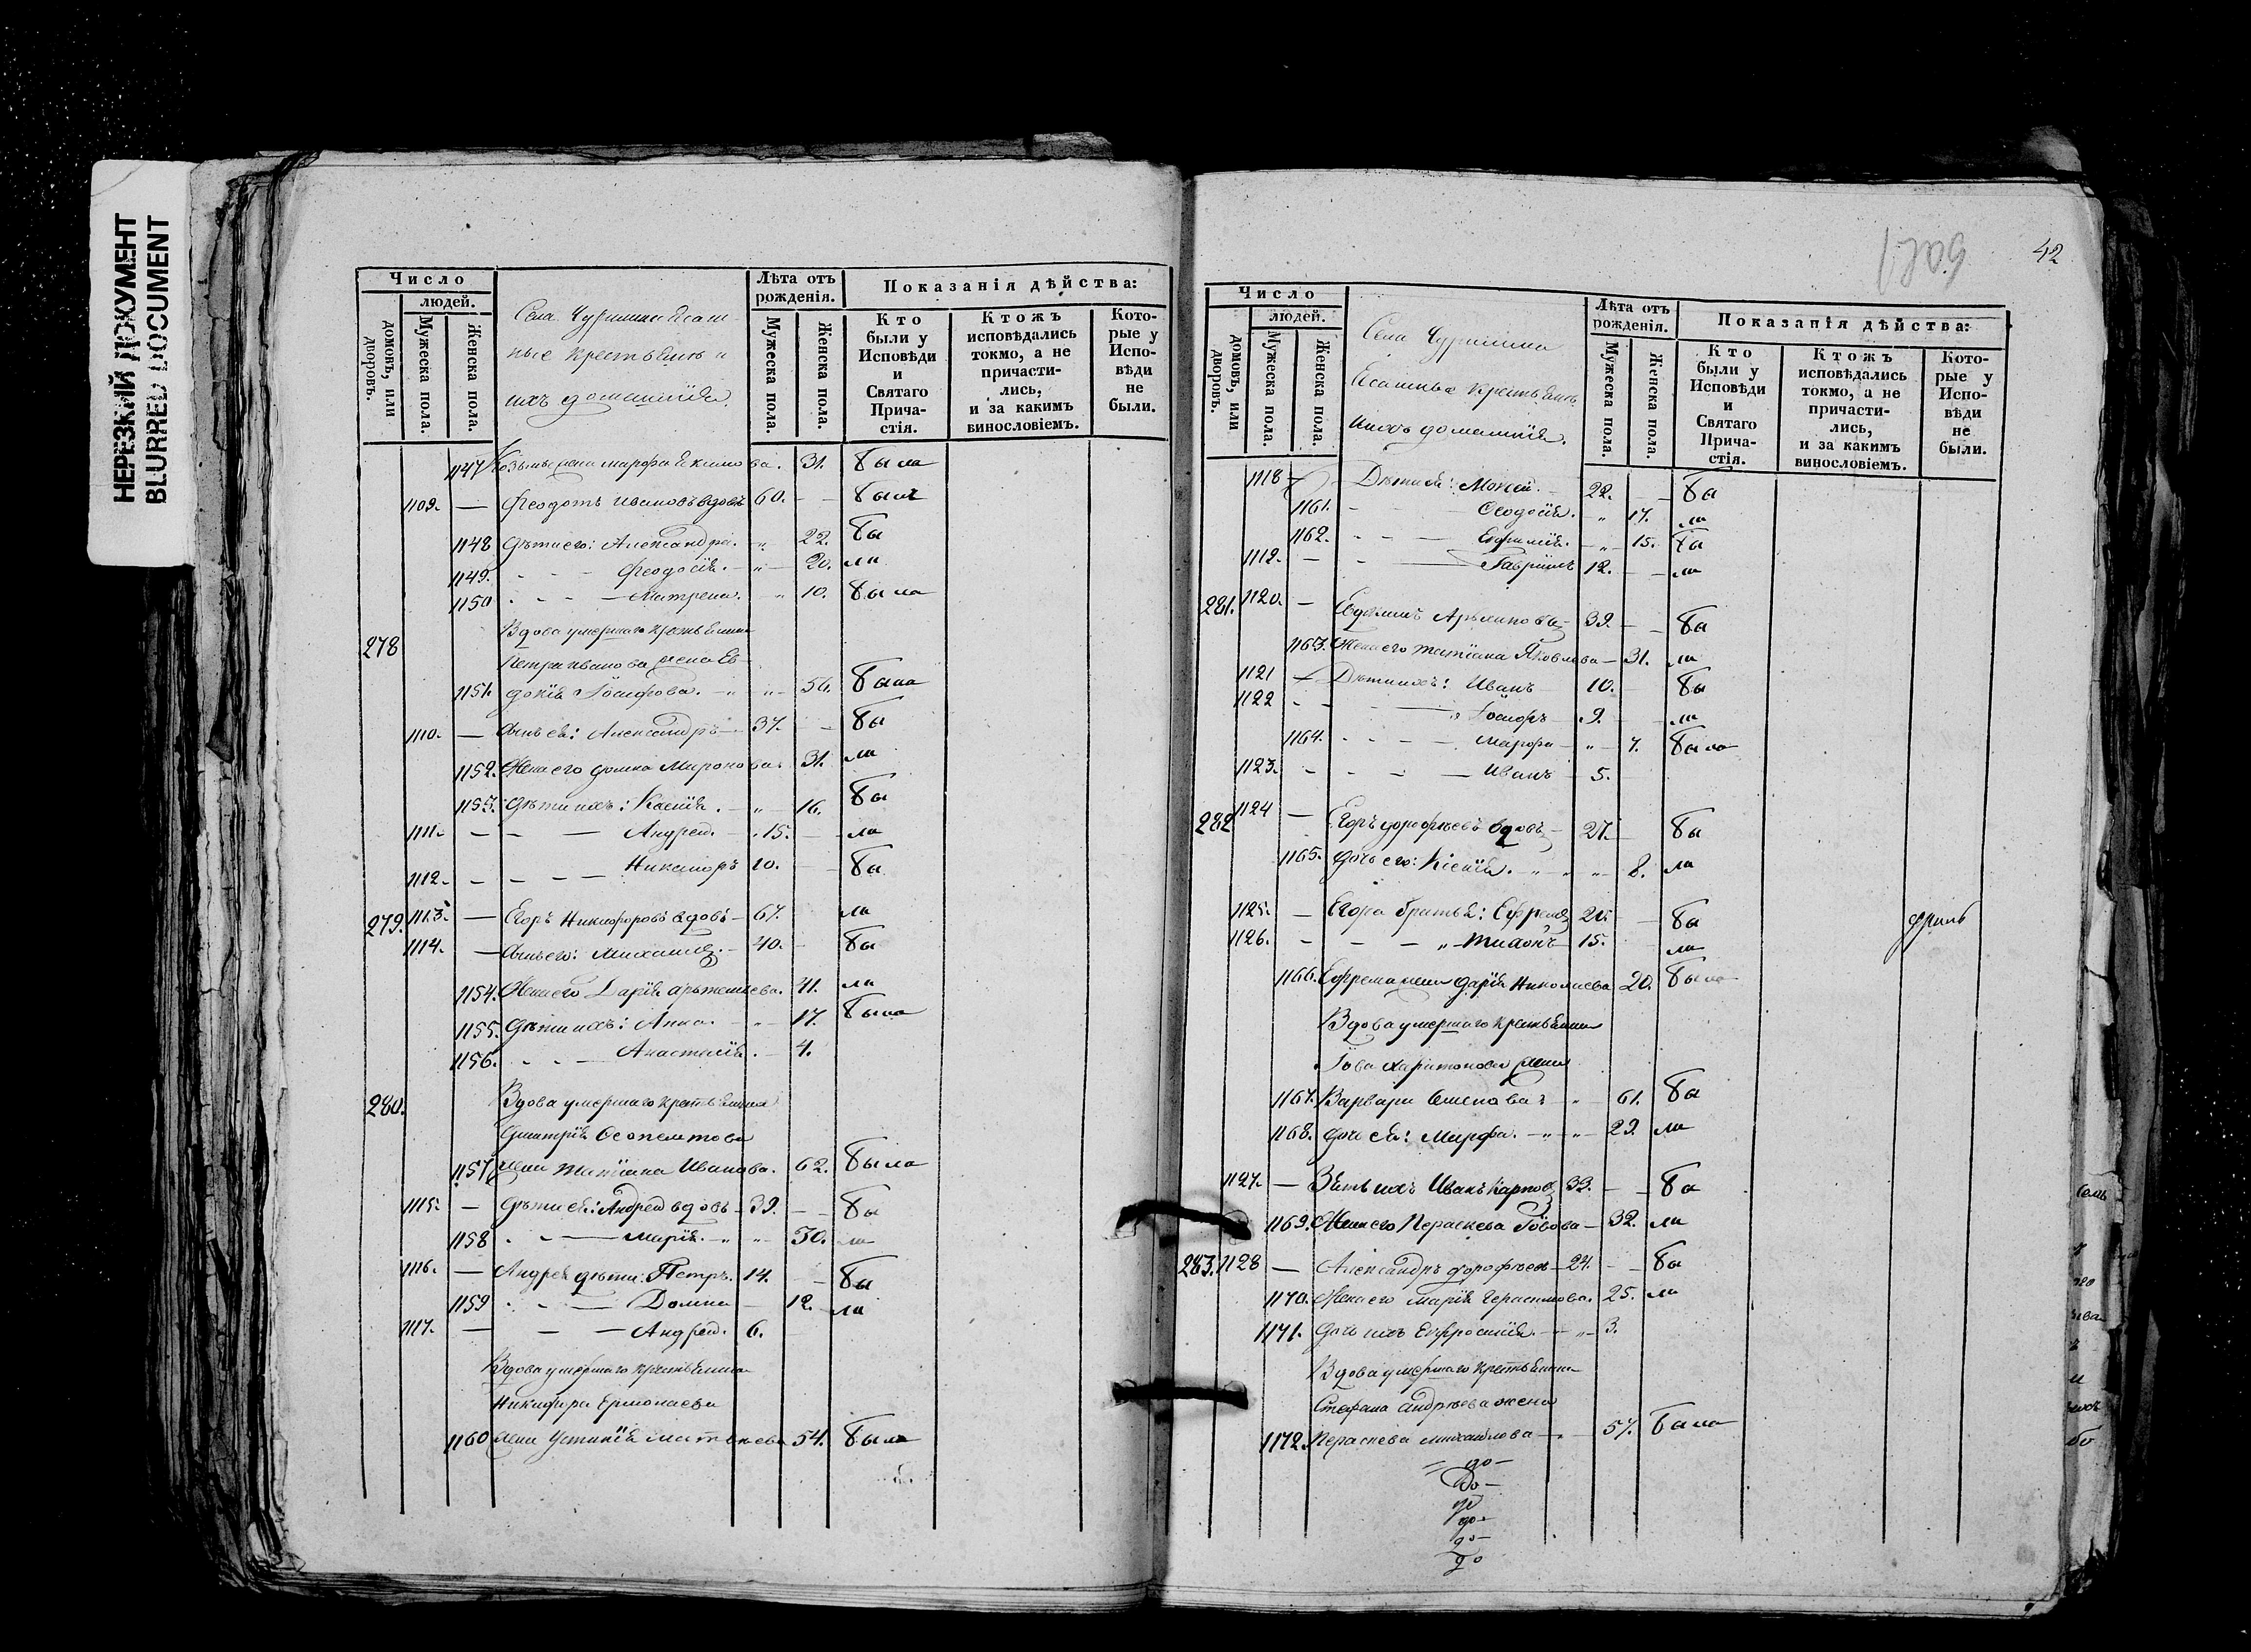 НЕРЕЗКИЙ ДОКУМЕНТ
BLURRED DOCUMENT
Число
людей.
домовъ, или дворовъ.
Мужеска пола.
Женска пола.
Села Чуришки Ясаш-
ные крестьяне и
ихъ домашнія.
Лѣта отъ рожденія.
Мужеска пола.
Женска пола.
Показанія дѣйства:
Кто были у Исповѣди и Святаго Причастія.
Ктожъ исповѣдались токмо, а не причастились, и за какимъ винословіемъ.
Которые у Исповѣди не были.
1147 Козьмы жена Марфа Екимова. 31. была
1109. — Феодотъ Ивановъ вдовъ 60. — былъ
1148 Дѣти его: Александра. — 22. бы
1149. — Феодосія. — 20. ли
1150 — Матрена. 10. была
278 Вдова умершаго крестьянина
Петра Иванова жена Ев-
1151. докія Іосифова. 56. была
1110. — Сынъ ея: Александръ — 37. бы
1152. Жена его Домна Миронова. 31. ли
1153. Дѣти ихъ: Ксенія. 16. бы
1111. — Андрей. 15. ли
1112. — Никаноръ 10. бы
279. 1113. — Егоръ Никифоровъ вдовъ — 67. ли
1114. — Сынъ его: Михаилъ. — 40. бы
1154. Жена его Дарія Артемьева. 41. ли
1155. Дѣти ихъ: Анна. 17. была
1156. — Анастасія. 4.
280. Вдова умершаго крестьянина
Дмитрія
1157. жена Татіана Иванова. 62. была
1115. — Дѣти ея: Андрей вдовъ — 39. бы
1158 — Марія. — 30. ли
1116. — Андрея дѣти: Петръ. 14. бы
1159 — Домна — 12. ли
1117. — Андрей. 6.
Вдова умершаго крестьянина
Никифора Ермолаева
1160 жена Устинія Матвеева 54. была
42
Число
людей.
домовъ, или дворовъ.
Мужеска пола.
Женска пола.
Села Чуришки
Ясашные крестьяне
и ихъ домашнія.
Лѣта отъ рожденія.
Мужеска пола.
Женска пола.
Показанія дѣйства:
Кто были у Исповѣди и Святаго Причастія.
Ктожъ исповѣдались токмо, а не причастились, и за какимъ винословіемъ.
Которые у Исповѣди не были.
1118 Дѣти ея: Мокей. 22. бы
1161. — Феодосія. 17. ли
1162. — Евфимія. 15. бы
1119. — Гавріилъ 12. ли
281. 1120. — Евдокимъ 39. бы
1163. Жена его Татіана Яковлева — 31. ли
1121 — Дѣти ихъ: Иванъ 10. бы
1122 — Іосифъ 9. ли
1164. — Марфа 7. была
1123. — Иванъ 5.
282 1124 — Егоръ Дорофѣевъ вдовъ — 27. бы
1165. Дочь его: Ксенія. 8. ли
1125. — Егора братья: Ефремъ 20. бы
1126. — Тихонъ 15. ли
1166. Ефрема жена Дарія Николаева 20. была
Вдова умершаго крестьянина
Іова Харитонова жена
1167. Варвара Семенова 61. бы
1168. Дочь ея: Марфа. 29. ли
1127. — Зять ихъ Иванъ Карповъ 33. бы
1169. Жена его Параскева Іовова — 32. ли
283. 1128 — Александръ Дорофѣевъ — 24. бы
1170. Жена его Марія Герасимова. 25. ли
1171. Дочь ихъ Евфросинія. 3.
Вдова умершаго крестьянина
Стефана Андрѣева жена
1172. Параскева Михайлова — 57. была
до
до
до
до
до
до